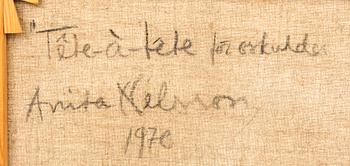 "Tête-à-tête för oskulder
Anita Nilsson
1970